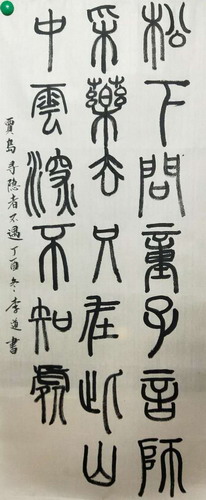 松下問童子言師
采藥去只在此山
中雲深不知處
賈島尋隐者不遇丁酉冬李道書